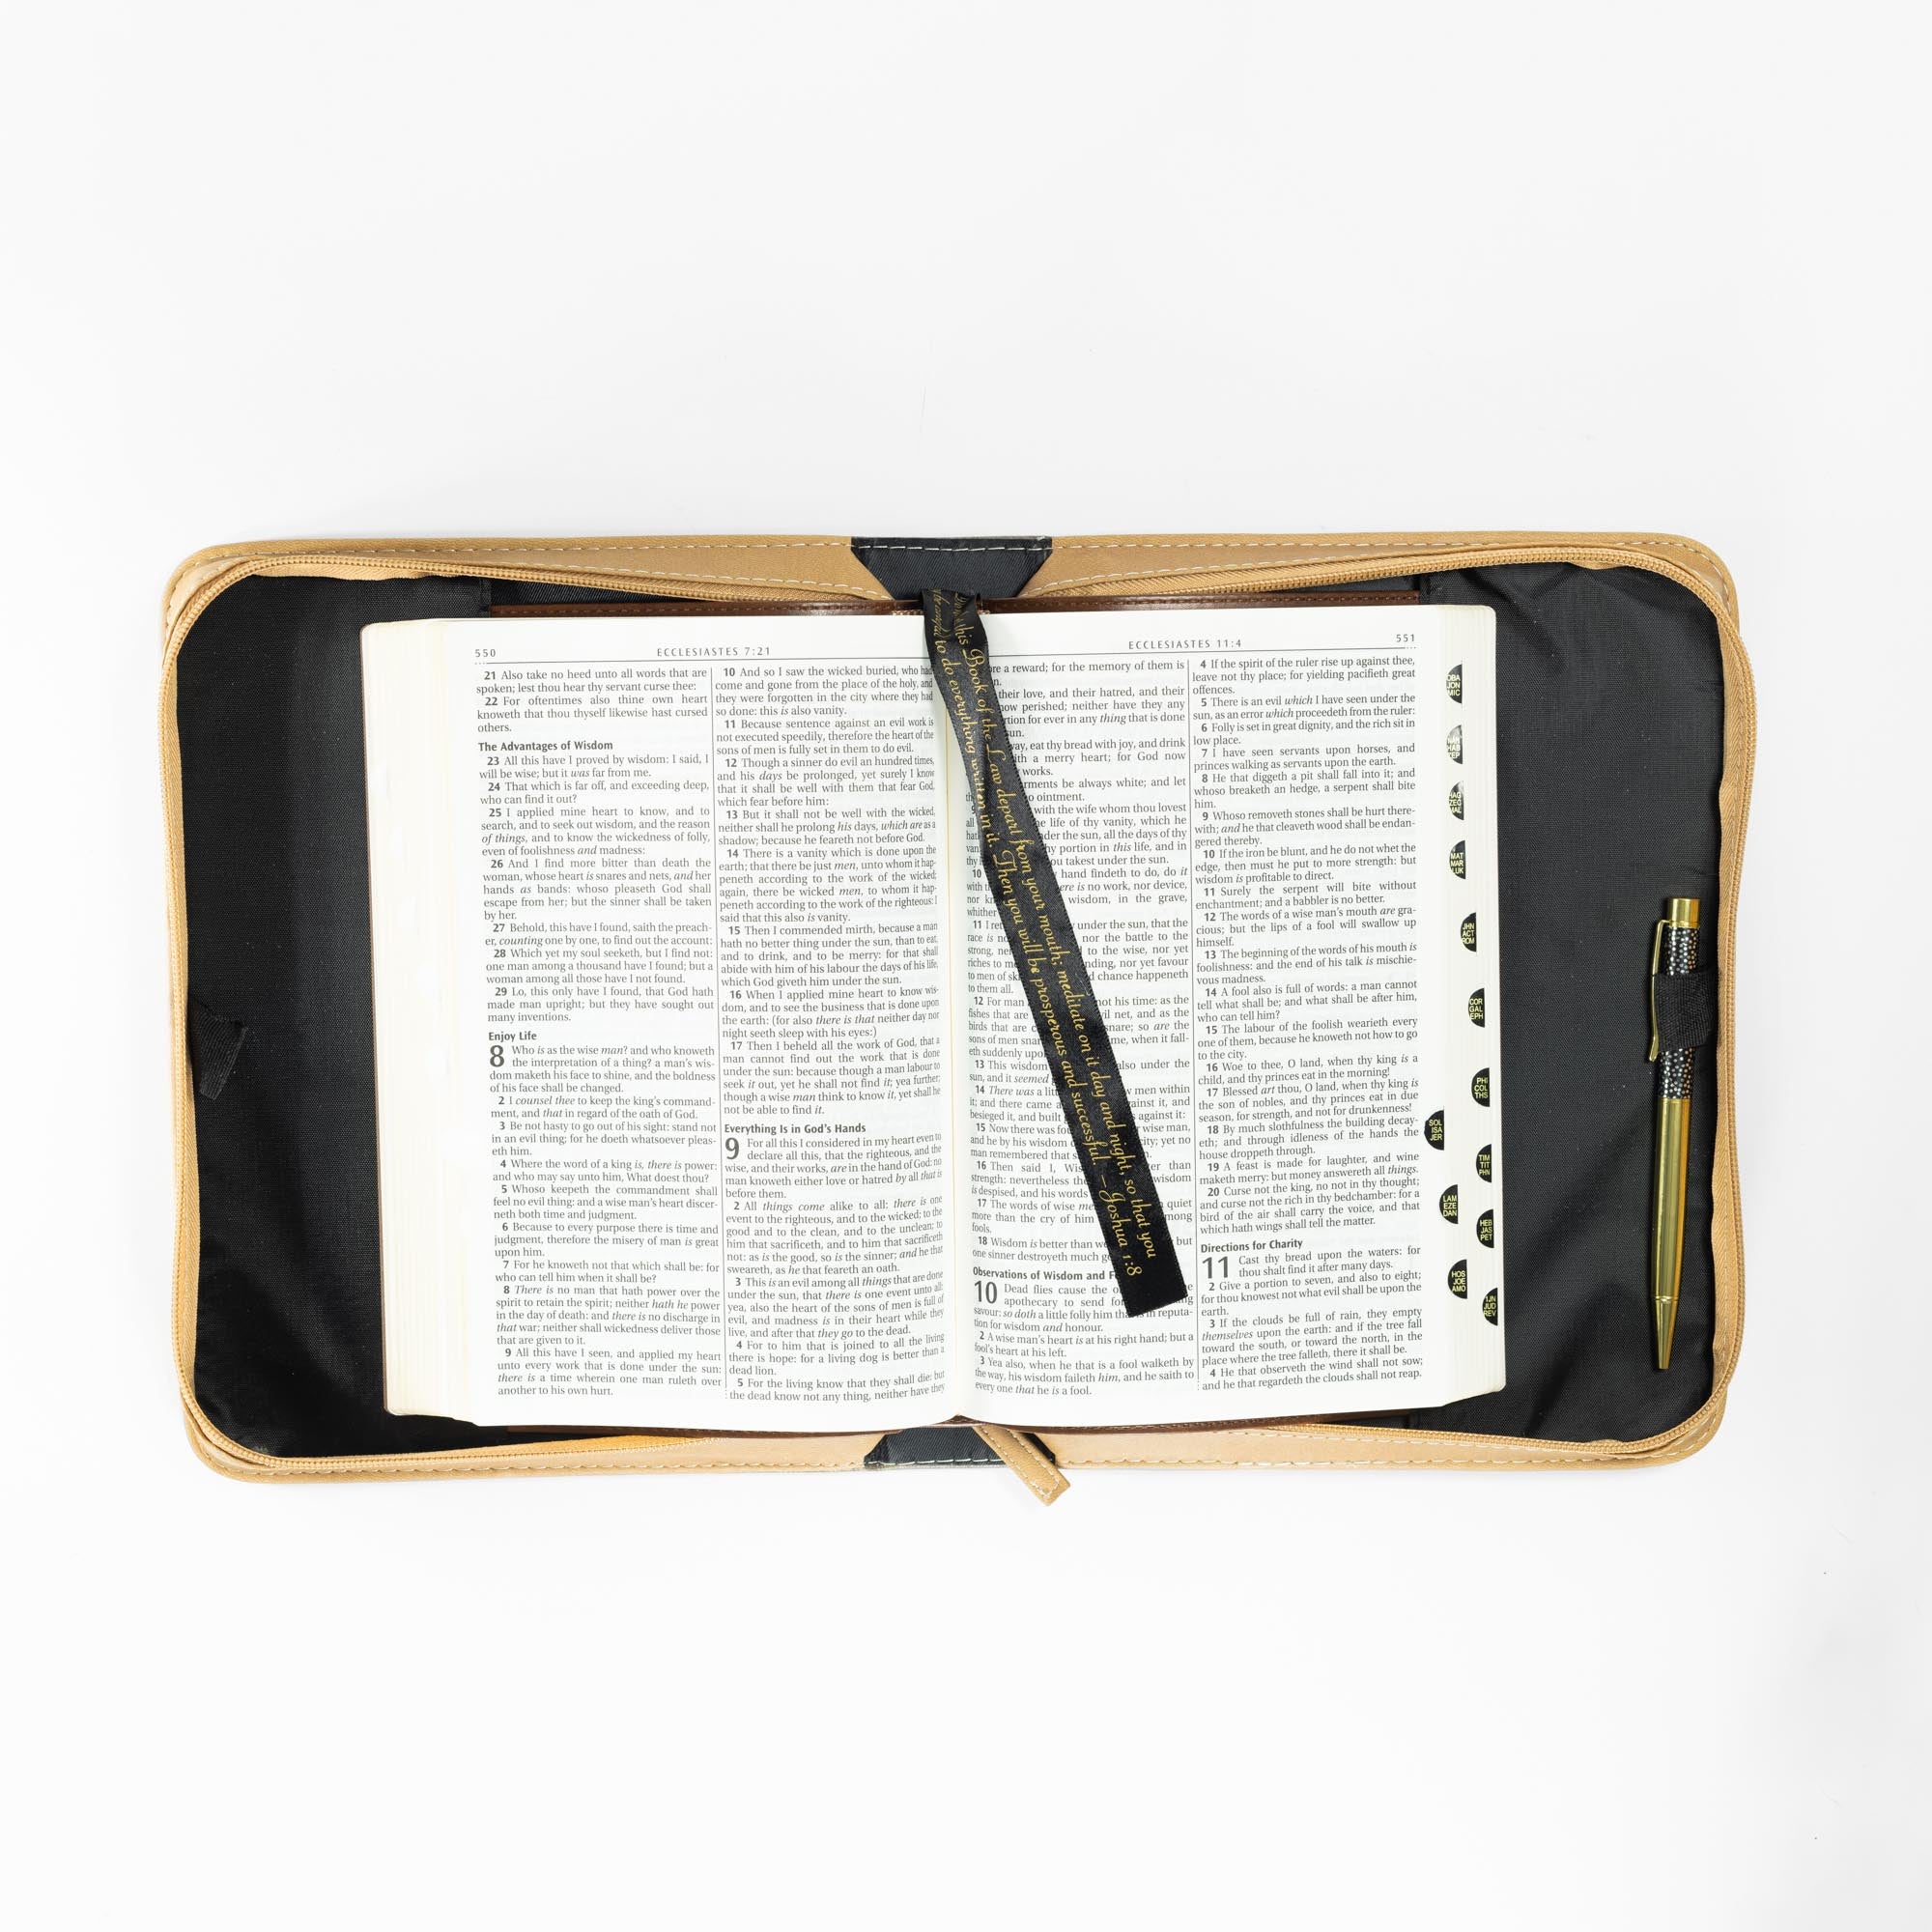 550
ECCLESIASTES 7:21
21 Also take no heed unto all words that are
spoken; lest thou hear thy servant curse thee:
22 For oftentimes also thine own heart
knoweth that thou thyself likewise hast cursed
others.
The Advantages of Wisdom
23 All this have I proved by wisdom: I said, I
will be wise; but it was far from me.
24 That which is far off, and exceeding deep,
who can find it out?
25 I applied mine heart to know, and to
search, and to seek out wisdom, and the reason
of things, and to know the wickedness of folly,
even of foolishness and madness:
26 And I find more bitter than death the
woman, whose heart is snares and nets, and her
hands as bands: whoso pleaseth God shall
escape from her; but the sinner shall be taken
by her.
27 Behold, this have I found, saith the preach-
er, counting one by one, to find out the account:
28 Which yet my soul seeketh, but I find not:
one man among a thousand have I found; but a
woman among all those have I not found.
29 Lo, this only have I found, that God hath
made man upright; but they have sought out
many inventions.
Enjoy Life
8 Who is as the wise man? and who knoweth
the interpretation of a thing? a man's wis-
dom maketh his face to shine, and the boldness
of his face shall be changed.
2 I counsel thee to keep the king's command-
ment, and that in regard of the oath of God.
3 Be not hasty to go out of his sight: stand not
in an evil thing; for he doeth whatsoever pleas-
eth him.
4 Where the word of a king is, there is power:
and who may say unto him, What doest thou?
5 Whoso keepeth the commandment shall
feel no evil thing: and a wise man's heart discer-
neth both time and judgment.
6 Because to every purpose there is time and
judgment, therefore the misery of man is great
upon him.
7 For he knoweth not that which shall be: for
who can tell him when it shall be?
8 There is no man that hath power over the
spirit to retain the spirit; neither hath he power
in the day of death: and there is no discharge in
that war; neither shall wickedness deliver those
that are given to it.
9 All this have I seen, and applied my heart
unto every work that is done under the sun:
there is a time wherein one man ruleth over
another to his own hurt.
10 And so I saw the wicked buried, who had
come and gone from the place of the holy, and
they were forgotten in the city where they had
so done: this is also vanity.
11 Because sentence against an evil work is
not executed speedily, therefore the heart of the
sons of men is fully set in them to do evil.
12 Though a sinner do evil an hundred times,
and his days be prolonged, yet surely I know
that it shall be well with them that fear God,
which fear before him:
13 But it shall not be well with the wicked,
neither shall he prolong his days, which are as a
shadow; because he feareth not before God.
14 There is a vanity which is done upon the
earth; that there be just men, unto whom it hap-
peneth according to the work of the wicked;
again, there be wicked men, to whom it hap-
peneth according to the work of the righteous: I
said that this also is vanity.
15 Then I commended mirth, because a man
hath no better thing under the sun, than to eat,
and to drink, and to be merry: for that shall
abide with him of his labour the days of his life,
which God giveth him under the sun.
16 When I applied mine heart to know wis-
dom, and to see the business that is done upon
the earth: (for also there is that neither day nor
night seeth sleep with his eyes:)
17 Then I beheld all the work of God, that a
man cannot find out the work that is done
under the sun: because though a man labour to
seek it out, yet he shall not find it; yea further;
though a wise man think to know it, yet shall he
not be able to find it.
Everything Is in God's Hands
9 For all this I considered in my heart even to
declare all this, that the righteous, and the
wise, and their works, are in the hand of God: no
man knoweth either love or hatred by all that is
before them.
2 All things come alike to all: there is one
event to the righteous, and to the wicked; to the
good and to the clean, and to the unclean; to
him that sacrificeth, and to him that sacrificeth
not: as is the good, so is the sinner; and he that
sweareth, as he that feareth an oath.
3 This is an evil among all things that are done
under the sun, that there is one event unto all:
yea, also the heart of the sons of men is full of
evil, and madness is in their heart while they
live, and after that they go to the dead.
4 For to him that is joined to all the living
there is hope: for a living dog is better than a
dead lion.
5 For the living know that they shall die: but
the dead know not any thing, neither have they
ECCLESIASTES 11:4
551
a reward; for the memory of them is
their love, and their hatred, and their
now perished; neither have they any
for ever in any thing that is done
sun.
eat thy bread with joy, and drink
with a merry heart; for God now
works.
be always white; and let
ointment.
with the wife whom thou lovest
life of thy vanity, which he
the sun, all the days of thy
portion in this life, and in
takest under the sun.
10 hand findeth to do, do it
with is no work, nor device,
nor wisdom, in the grave,
whither
11 I under the sun, that the
race is nor the battle to the
strong, to the wise, nor yet
riches to nor yet favour
to men of chance happeneth
to them all.
12 For man not his time: as the
fishes that are net, and as the
birds that are snare; so are the
sons of men when it fall-
eth suddenly
13 This wisdom also under the
sun, and it seemed
14 There was a men within
it; and there came a it, and
besieged it, and built against it:
15 Now there was wise man,
and he by his wisdom yet no
man remembered that
16 Then said I, than
strength: nevertheless the wisdom
is despised, and his words
17 The words of wise quiet
more than the cry of him among
fools.
18 Wisdom is better than but
one sinner destroyeth much
Observations of Wisdom and
10 Dead flies cause the
apothecary to send
savour: so doth a little folly him in reputa-
tion for wisdom and honour.
2 A wise man's heart is at his right hand; but a
fool's heart at his left.
3 Yea also, when he that is a fool walketh by
the way, his wisdom faileth him, and he saith to
every one that he is a fool.
4 If the spirit of the ruler rise up against thee,
leave not thy place; for yielding pacifieth great
offences.
5 There is an evil which I have seen under the
sun, as an error which proceedeth from the ruler:
6 Folly is set in great dignity, and the rich sit in
low place.
7 I have seen servants upon horses, and
princes walking as servants upon the earth.
8 He that diggeth a pit shall fall into it; and
whoso breaketh an hedge, a serpent shall bite
him.
9 Whoso removeth stones shall be hurt there-
with; and he that cleaveth wood shall be endan-
gered thereby.
10 If the iron be blunt, and he do not whet the
edge, then must he put to more strength: but
wisdom is profitable to direct.
11 Surely the serpent will bite without
enchantment; and a babbler is no better.
12 The words of a wise man's mouth are gra-
cious; but the lips of a fool will swallow up
himself.
13 The beginning of the words of his mouth is
foolishness: and the end of his talk is mischie-
vous madness.
14 A fool also is full of words: a man cannot
tell what shall be; and what shall be after him,
who can tell him?
15 The labour of the foolish wearieth every
one of them, because he knoweth not how to go
to the city.
16 Woe to thee, O land, when thy king is a
child, and thy princes eat in the morning!
17 Blessed art thou, O land, when thy king is
the son of nobles, and thy princes eat in due
season, for strength, and not for drunkenness!
18 By much slothfulness the building decay-
eth; and through idleness of the hands the
house droppeth through.
19 A feast is made for laughter, and wine
maketh merry: but money answereth all things.
20 Curse not the king, no not in thy thought;
and curse not the rich in thy bedchamber: for a
bird of the air shall carry the voice, and that
which hath wings shall tell the matter.
Directions for Charity
11 Cast thy bread upon the waters: for
thou shalt find it after many days.
2 Give a portion to seven, and also to eight;
for thou knowest not what evil shall be upon the
earth.
3 If the clouds be full of rain, they empty
themselves upon the earth: and if the tree fall
toward the south, or toward the north, in the
place where the tree falleth, there it shall be.
4 He that observeth the wind shall not sow;
and he that regardeth the clouds shall not reap.
this Book of the Law depart from your mouth; meditate on it day and night, so that you
to do everything written in it. Then you will be prosperous and successful. –Joshua 1:8
OBA
JON
MIC
MAT
MAR
LUK
JHN
ACT
ROM
COR
GAL
EPH
PHI
COL
THS
SOL
ISA
JER
TIM
TIT
PHN
LAM
EZE
DAN
HEB
JAS
PET
HOS
JOE
AMO
1JN
JUD
REV